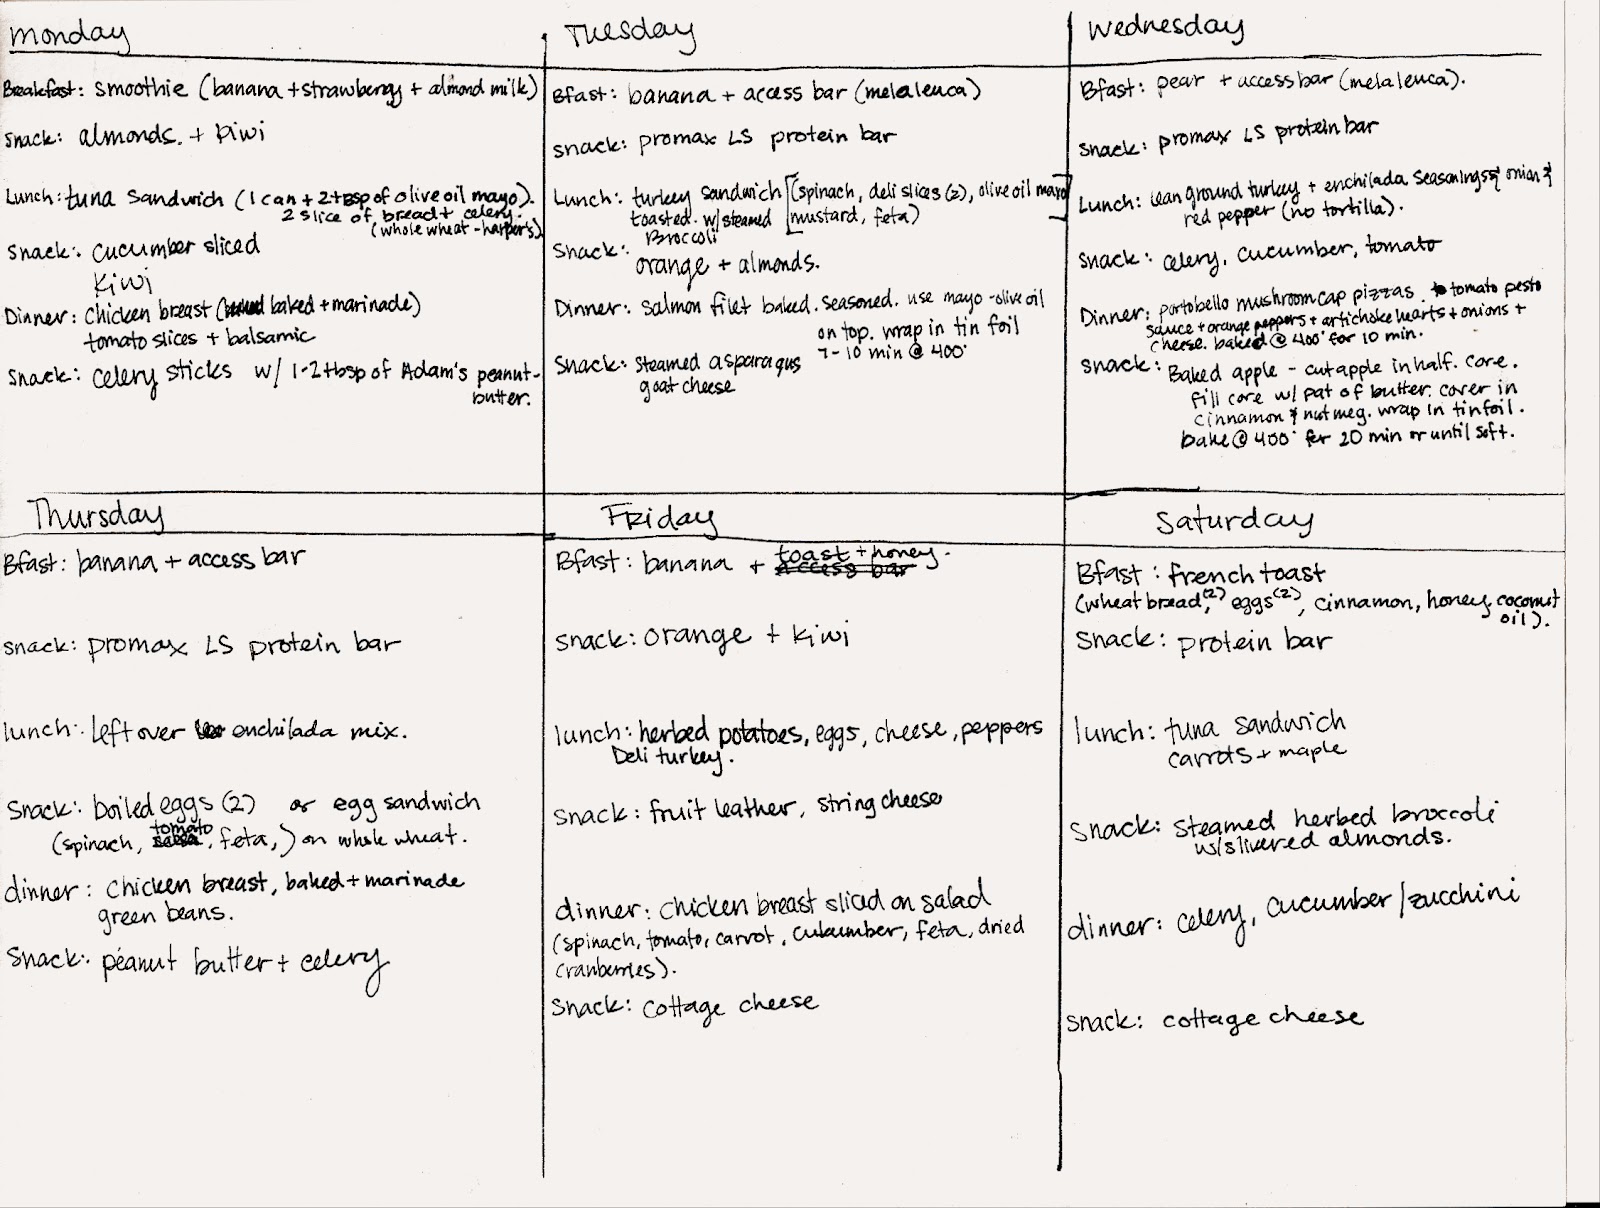 Monday
Breakfast: smoothie (banana + strawberry + almond milk)
Snack: almonds. + kiwi
Lunch: tuna sandwich (1 can + 2 tbsp of olive oil mayo).
2 slice of bread + celery.
(whole wheat - harper's)
Snack: cucumber sliced
kiwi
Dinner: chicken breast (baked + marinade)
tomato slices + balsamic
Snack: celery sticks w/ 1-2 tbsp of Adam's peanut-
butter.
Tuesday
Bfast: banana + access bar (melaleuca)
snack: promax LS protein bar
Lunch: turkey sandwich [(spinach, deli slices (2), olive oil mayo]
toasted. w/ steamed [mustard, feta)
Broccoli
Snack:
orange + almonds.
Dinner: salmon filet baked. seasoned. use mayo - olive oil
on top. wrap in tin foil
7-10 min @ 400°
Snack: steamed asparagus
goat cheese
Wednesday
Bfast: pear + access bar (melaleuca).
Snack: promax LS protein bar
Lunch: lean ground turkey + enchilada seasonings & onion &
red pepper (no tortilla).
Snack: celery, cucumber, tomato
Dinner: portobello mushroom cap pizzas. tomato pesto
sauce + orange peppers + artichoke hearts + onions +
cheese. baked @ 400° for 10 min.
snack: Baked apple - cut apple in half. core.
fill core w/ pat of butter. cover in
cinnamon & nutmeg. wrap in tinfoil.
bake @ 400° for 20 min or until soft.
Thursday
Bfast: banana + access bar
snack: promax LS protein bar
lunch: left over enchilada mix.
Snack: boiled eggs (2) or egg sandwich
tomato
(spinach, salsa, feta,) on whole wheat.
dinner: chicken breast, baked + marinade
green beans.
Snack: peanut butter + celery
Friday
toast + honey.
Bfast: banana + access bar
snack: orange + kiwi
lunch: herbed potatoes, eggs, cheese, peppers
Deli turkey.
snack: fruit leather, string cheese
dinner: chicken breast sliced on salad
(spinach, tomato, carrot, cukumber, feta, dried
cranberries).
Snack: cottage cheese
Saturday
Bfast: french toast
(wheat bread,(2) eggs(2), cinnamon, honey, coconut
oil).
Snack: protein bar
lunch: tuna sandwich
carrots + maple
Snack: steamed herbed broccoli
w/ slivered almonds.
dinner: celery, cucumber/zucchini
snack: cottage cheese